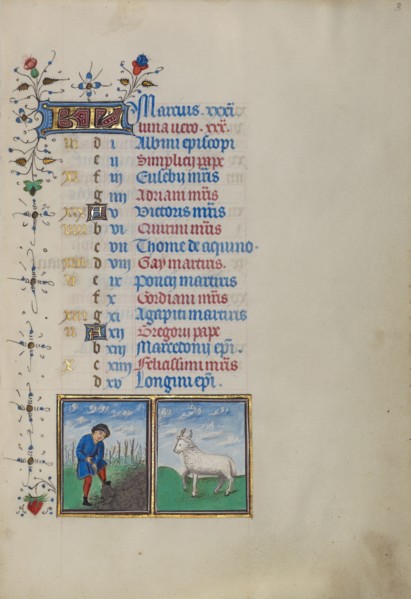 KL Marcius .xxxi.
luna vero .xxx.
iii d i Albini episcopi
e ii Simplicij pape
xi f iij Euseby mris
g iiij Adriani mris
xix A v Victoris mris
viii b vi Quirini mris
c vii Thome de aquino.
d viij Gay martiris.
v e ix Poncij martiris
f x Gordiani mris
g xi Agapiti martiris
ii A xij Gregorij pape
b xiij Marcedonij epi.
x c xiiij Felicissimi mris
d xv Longini epi.